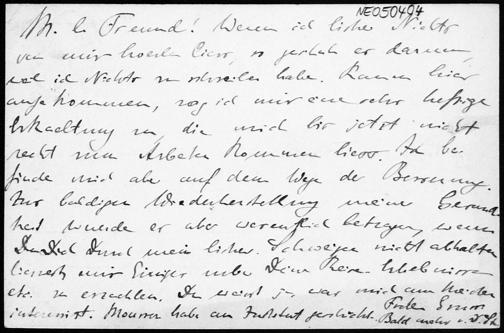 NE050494
M. l. Freund! Wenn ich bisher Nichts
von mir hoeren liess, so geschah es darum,
weil ich Nichts zu schreiben habe. Kaum hier
angekommen, zog ich mir eine sehr heftige
Erkaeltung zu, die mich bis jetzt nicht
recht zum Arbeiten kommen liess. Ich be-
finde mich aber auf dem Wege der Besserung.
Zur baldigen Wiederherstellung meiner Gesund-
heit wuerde es aber wesentlich beitragen, wenn
Du Dich durch mein bisher. Schweigen nicht abhalten
liessest mir Einiges ueber Deine Reise-Erlebnisse
etc. zu erzaehlen. Du weisst ja was mich am meisten
interessirt. Mourou habe am
Bald mehr v.